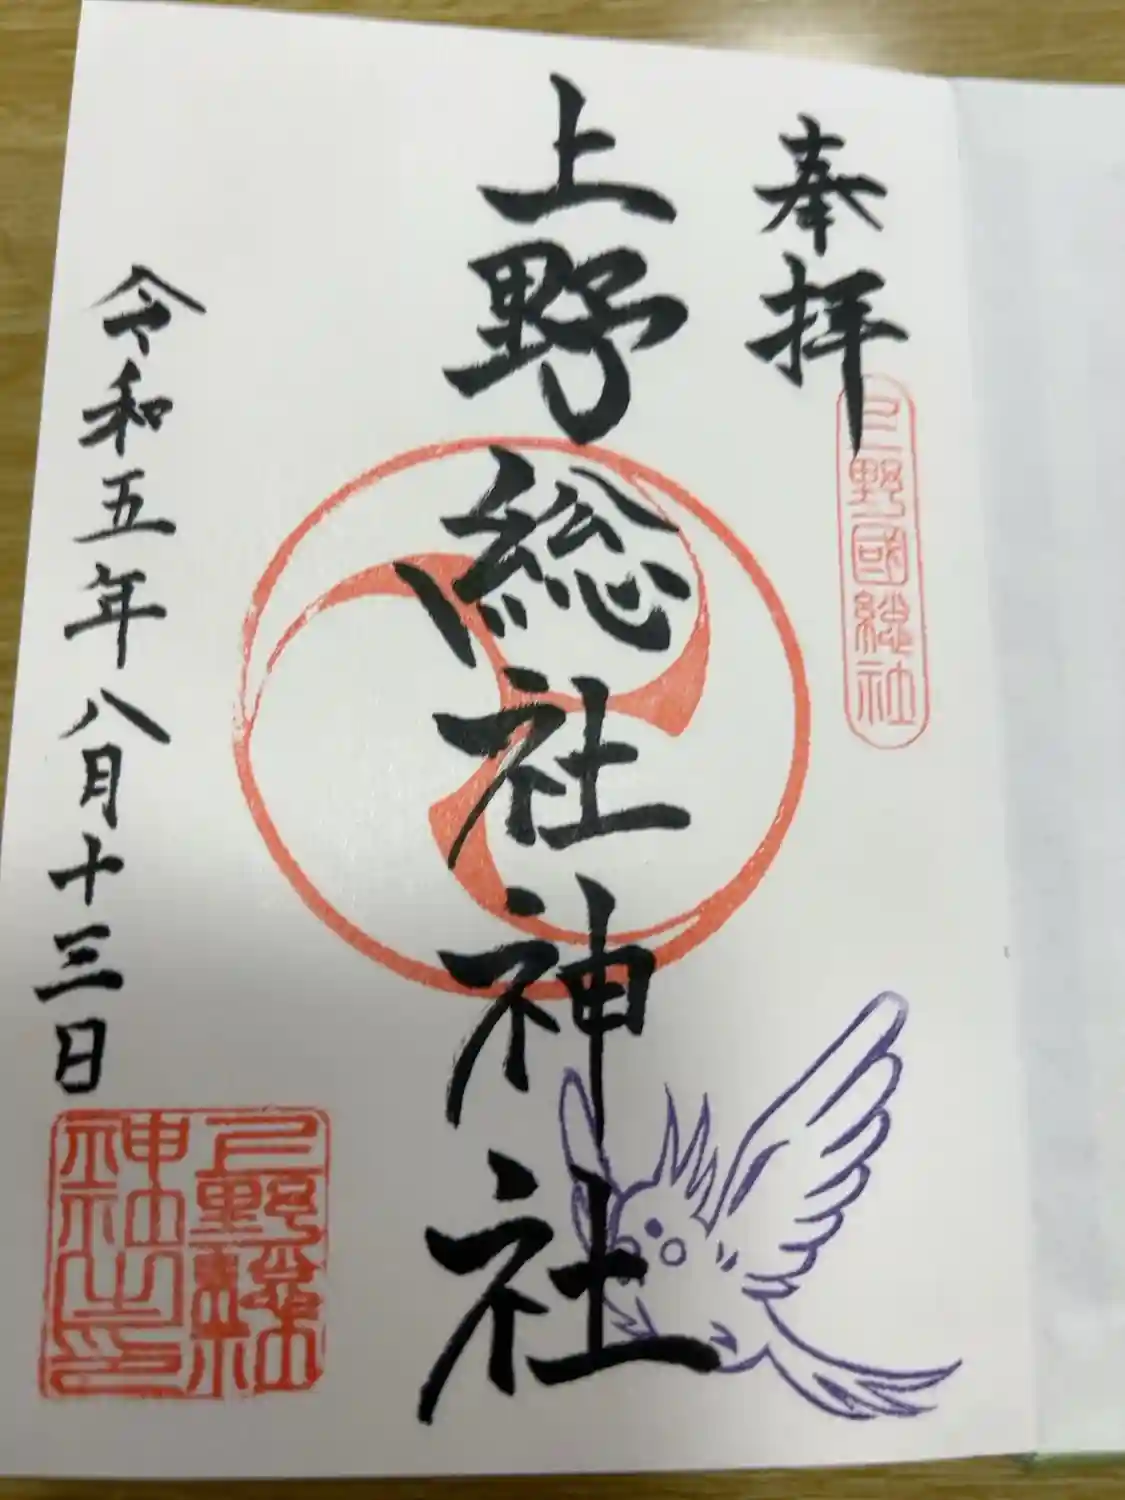 奉拝
上野國総社
上野総社神社
令和五年八月十三日
上野総社
神社之印